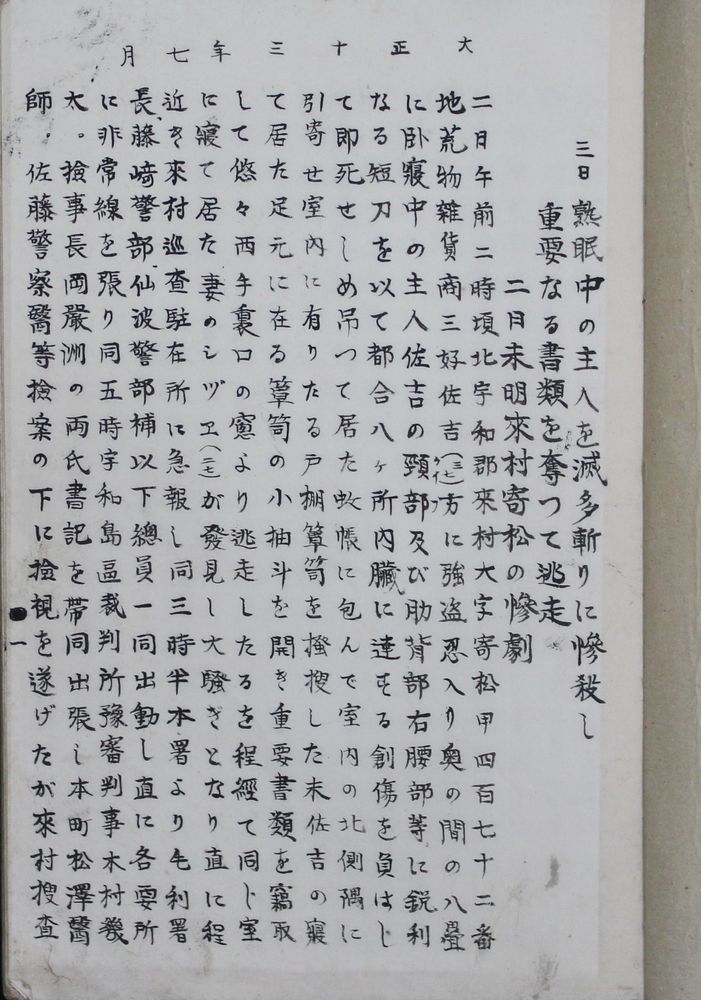 大正十三年七月
三日 熟眠中の主人を滅多斬りに慘殺し
重要なる書類を奪つて逃走
二日未明來村寄松の慘劇
二日午前二時頃北宇和郡來村大字寄松甲四百七十二番
地荒物雜貨商三好佐吉(三七)方に強盗忍入り奥の間の八疊
に臥寢中の主人佐吉の頸部及び肋背部右腰部等に鋭利
なる短刀を以て都合八ヶ所内臓に達する創傷を負はし
て即死せしめ吊つて居た蚊帳に包んで室内の北側隅に
引寄せ室内に有りたる戸棚簞笥を掻搜した末佐吉の寢
て居た足元に在る簞笥の小抽斗を開き重要書類を竊取
して悠々西手裏口の窓より逃走したるを程經て同じ室
に寢て居た妻のシヅヱ(二七)が發見し大騒ぎとなり直に程
近き來村巡査駐在所に急報し同三時半本署より毛利署
長藤﨑警部仙波警部補以下總員一同出動し直に各要所
に非常線を張り同五時宇和島區裁判所豫審判事木村幾
太。撿事長岡嚴洲の両氏書記を帶同出張し本町松澤醫
師。佐藤警察醫等撿案の下に撿視を遂げたが來村搜査
一